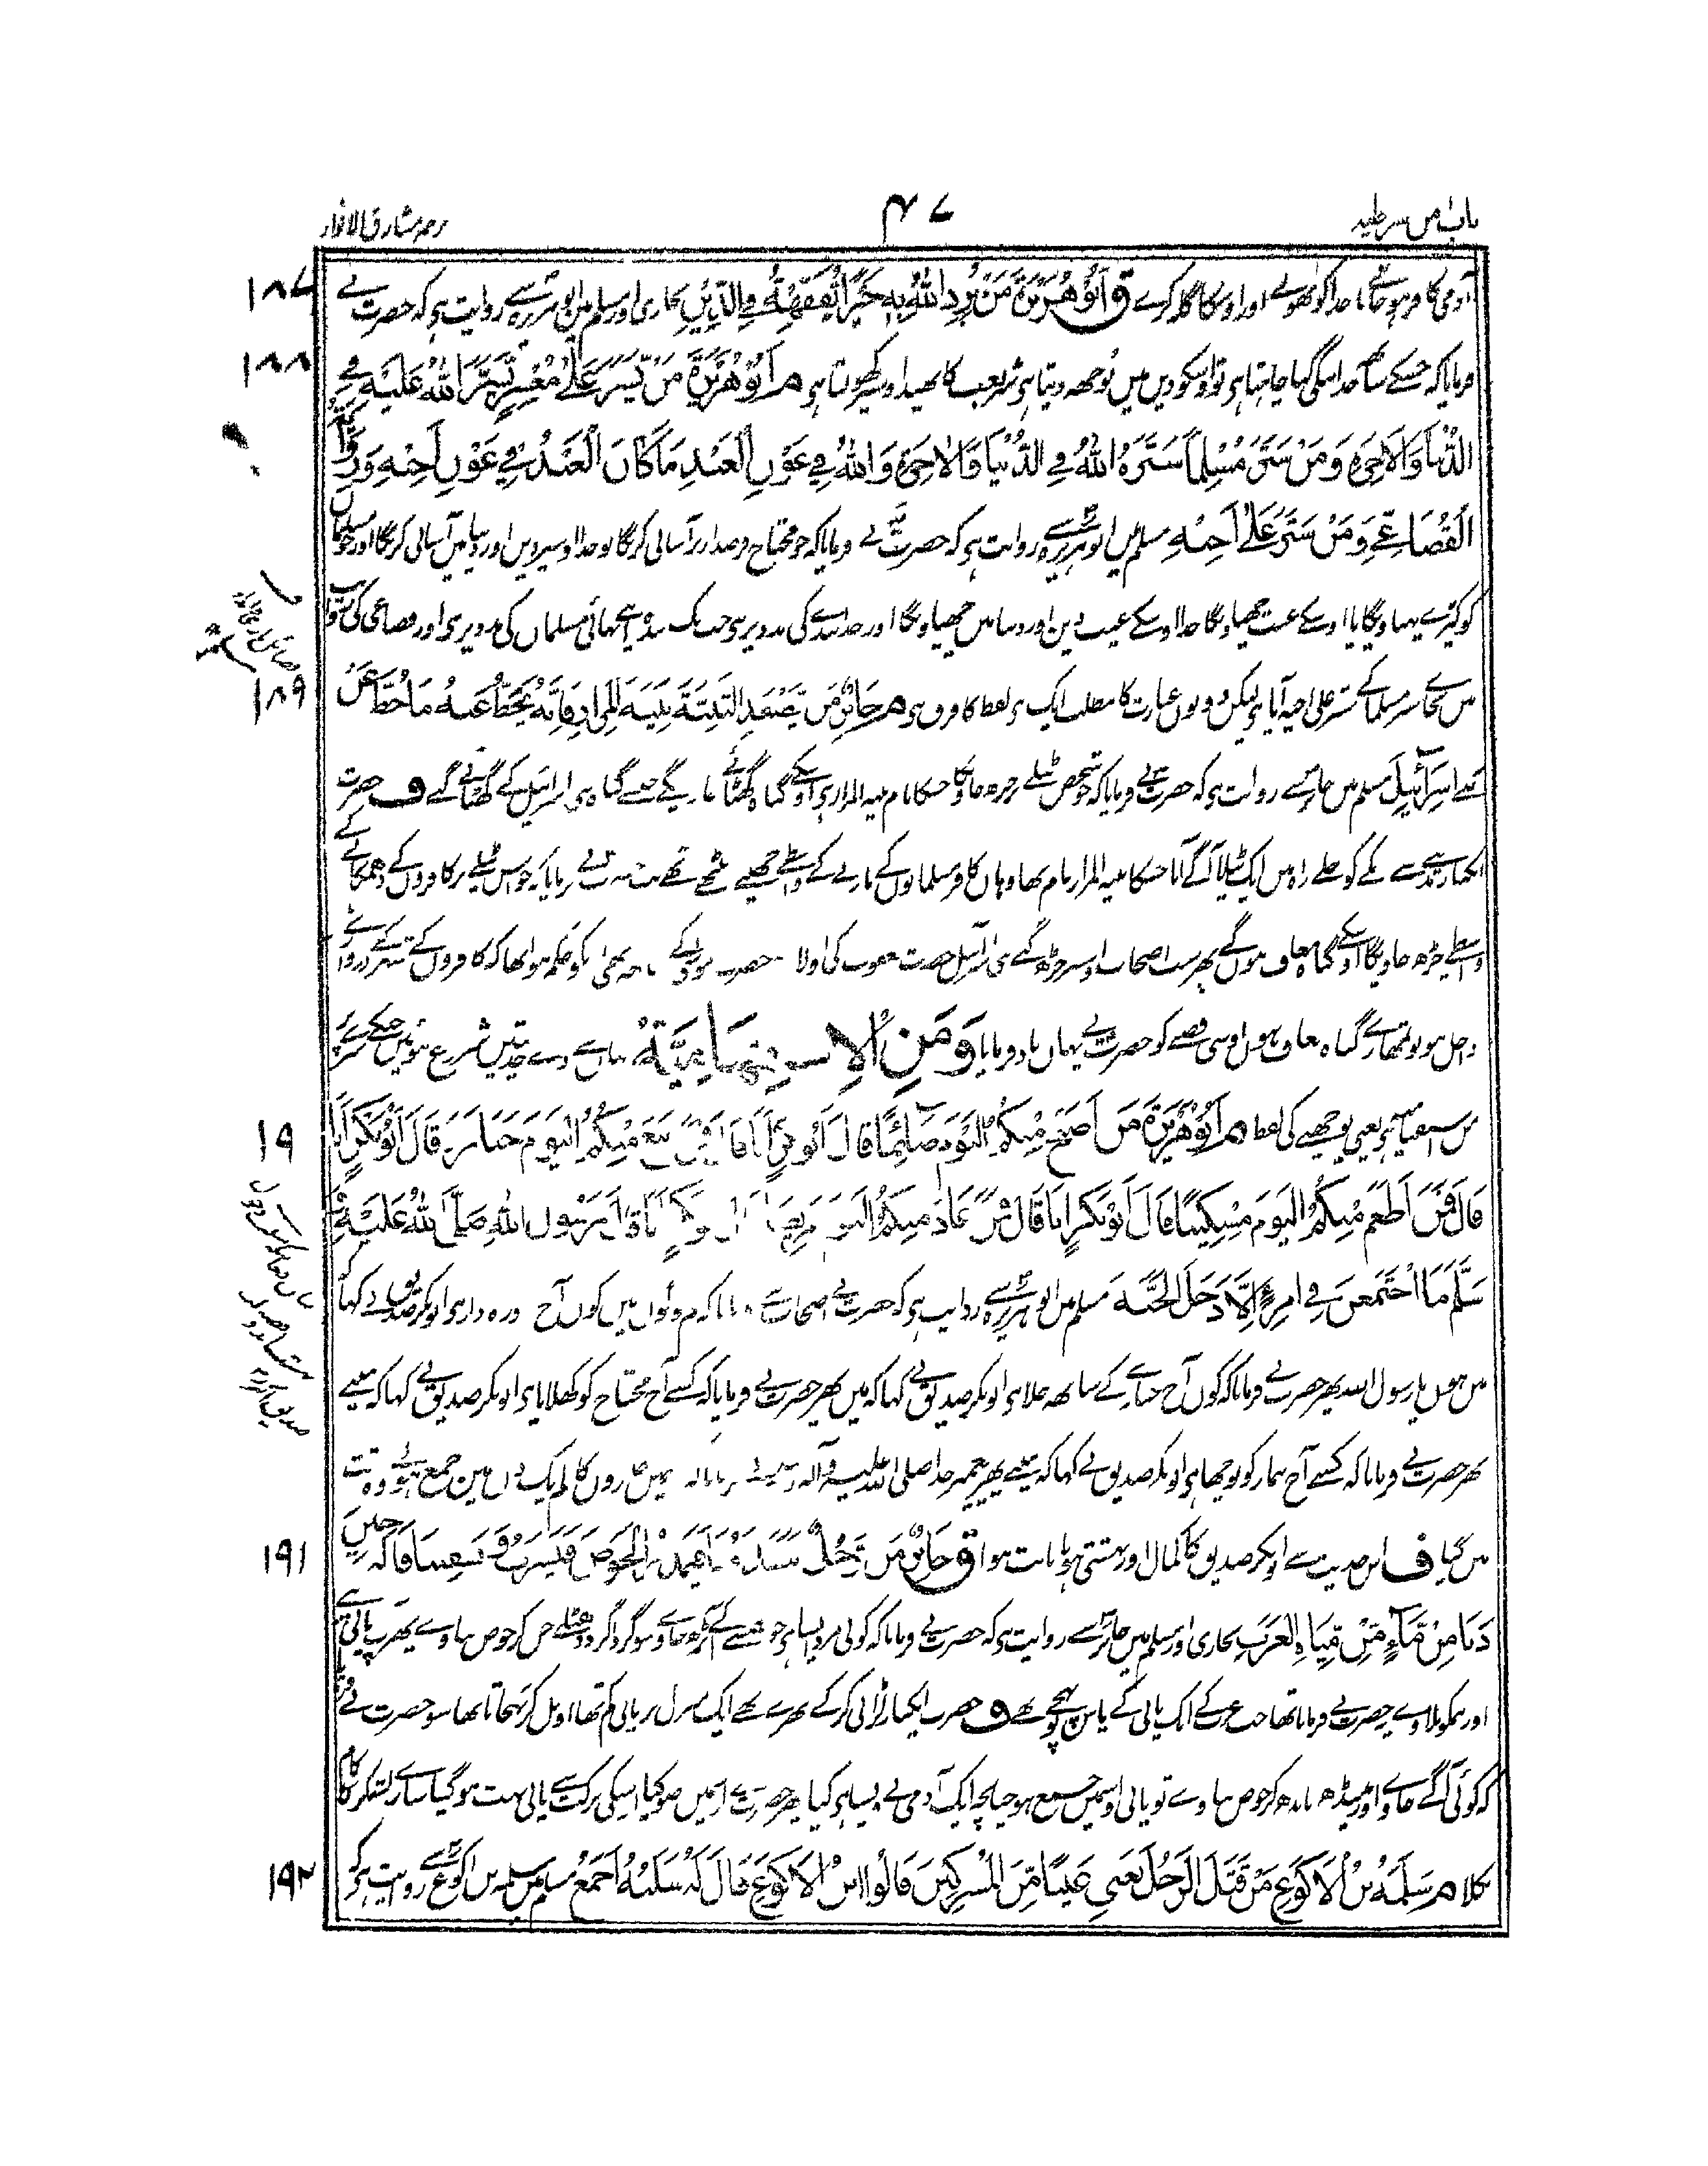 باب من شرطیہ
۴۷
ترجمہ مشارق الانوار
آدمی کافر ہو جاتا خدا کو بھولے اور اوسکا گلہ کرے ق اَبُوْهُرَيْرَةَ مَنْ يُرِدِ اللهُ بِهِ خَيْرًا يُفَقِّهْهُ فِي الدِّيْنِ بخاری اور مسلم میں ابوہریرہ سے روایت ہی کہ حضرت نے
۱۸۷
فرمایا کہ جسکے ساتھ خدا نیکی کیا چاہتا ہی تو اوسکو دیں میں بوجھہ دیتا ہی شریعت کا بھید اوسپر کھولتا ہی م اَبُوْهُرَيْرَةَ مَنْ يَّسَّرَ عَلٰى مُعْسِرٍ يَّسَّرَ اللهُ عَلَيْهِ فِي
۱۸۸
الدُّنْيَا وَالْاٰخِرَةِ وَمَنْ سَتَرَ مُسْلِمًا سَتَرَهُ اللهُ فِي الدُّنْيَا وَالْاٰخِرَةِ وَاللهُ فِي عَوْنِ الْعَبْدِ مَا كَانَ الْعَبْدُ فِي عَوْنِ اَخِيْهِ وَرَوَاهُ
الْقُضَاعِيُّ وَمَنْ سَتَرَ عَلٰى اَخِيْهِ مسلم میں ابوہریرہ سے روایت ہی کہ حضرت نے فرمایا کہ جو محتاج قرضدار پر آسانی کریگا تو خدا اوسپر دین اور دنیا میں آسانی کریگا اور جو مسلمان
کو کپڑے پہناویگا یا اوسکے عیب چھپاویگا خدا اوسکے عیب دین اور دنیا میں چھپاویگا اور خدا بندے کی مدد پر ہی جب تک بندہ اپنے بھائی مسلمان کی مدد پر ہی اور قضاعی کی کتاب
میں بجائے ستر مسلما کے ستر علی اخیہ آیا ہی لیکن دونوں عبارت کا مطلب ایک ہی لفظ کا فرق ہی م جَابِرٌ مَنْ يَّصْعَدِ الثَّنِيَّةَ ثَنِيَّةَ الْمُرَارِ فَاِنَّهُ يُحَطُّ عَنْهُ مَا حُطَّ عَنْ
۱۸۹
بَنِي اِسْرَائِيْلَ مسلم میں جابر سے روایت ہی کہ حضرت نے فرمایا کہ جو شخص ٹیلے پر چڑھ جاویگا جسکا نام ثنیہ المرار ہی اوسکے گناہ گھٹائے جاوینگے جیسے گناہ بنی اسرائیل کے گھٹائے گئے ف حضرت
ایکبار مدینے سے مکے کو چلے راہ میں ایک ٹیلا آگے آیا جسکا ثنیہ المرار نام تھا وہاں کافر مسلمانوں کے مارنے کے واسطے چھپے بیٹھے تھے حضرت نے فرمایا کہ جو اس ٹیلے پر کافروں کے دھمکانے کے
واسطے چڑھ جاویگا اوسکے گناہ معاف ہوں گے پھر سب اصحاب اوسپر چڑھ گئے بنی اسرائیل حضرت یعقوب کی اولاد حضرت موسیٰ کے ساتھ تھی اونکو حکم ہوا تھا کہ کافروں کے شہر کے دروازے
داخل ہو تو تمہارے گناہ معاف ہوں اوسی قصے کو حضرت نے یہاں یاد فرمایا وَمَنِ الْاِسْتِفْهَامِيَّةُ یہاں سے وے حدیثیں شروع ہوئیں جنکے سرے پر
من استفہامیہ ہی یعنی پوچھنے کی لفظ م اَبُوْهُرَيْرَةَ مَنْ اَصْبَحَ مِنْكُمُ الْيَوْمَ صَائِمًا قَالَ اَبُوْبَكْرٍ اَنَا قَالَ فَمَنْ تَبِعَ مِنْكُمُ الْيَوْمَ جَنَازَةً قَالَ اَبُوْبَكْرٍ اَنَا
۱۹
قَالَ فَمَنْ اَطْعَمَ مِنْكُمُ الْيَوْمَ مِسْكِيْنًا قَالَ اَبُوْبَكْرٍ اَنَا قَالَ فَمَنْ عَادَ مِنْكُمُ الْيَوْمَ مَرِيْضًا قَالَ اَبُوْبَكْرٍ اَنَا قَالَ رَسُوْلُ اللهِ صَلَّى اللهُ عَلَيْهِ وَ
سَلَّمَ مَا اجْتَمَعْنَ فِي امْرِءٍ اِلَّا دَخَلَ الْجَنَّةَ مسلم میں ابوہریرہ سے روایت ہی کہ حضرت نے اصحاب سے فرمایا کہ تم لوگوں میں کون آج روزہ دار ہی ابوبکر صدیق نے کہا
میں ہوں یا رسول اللہ پھر حضرت نے فرمایا کہ کون آج جنازے کے ساتھہ چلا ہی ابوبکر صدیق نے کہا کہ میں پھر حضرت نے فرمایا کہ کسنے آج محتاج کو کھلایا ہی ابوبکر صدیق نے کہا کہ مینے
پھر حضرت نے فرمایا کہ کسنے آج بیمار کو پوچھا ہی ابوبکر صدیق نے کہا کہ مینے پھر پیغمبر خدا صلی اللہ علیہ وآلہ وسلم نے فرمایا کہ نہیں ان چیزوں کا ایک آدمی میں جمع ہوئے وہ بہشت
میں گیا ف اس حدیث سے ابوبکر صدیق کا کمال اور بہشتی ہونا ثابت ہوا ق جَابِرٌ مَنْ رَّجُلٌ يَتَقَدَّمُنَا فَيَمْدُرُ الْحَوْضَ فَيَشْرَبُ وَيَسْقِيْنَا قَالَهُ حِيْنَ
۱۹۱
دَنَا مِنْ مَّاءٍ مِّنْ مِّيَاهِ الْعَرَبِ بخاری اور مسلم میں جابر سے روایت ہی کہ حضرت نے فرمایا کہ کوئی مرد ایسا ہی جو ہمسے آگے بڑھ جاوے سو گرد گرد ڈھیلے چن کر حوض بناوے پھر آپ پانی پئے
اور ہمکو پلاوے یہ حضرت نے فرمایا تھا جب عرب کے ایک پانی کے پاس پہنچے تھے ف حضرت ایکبار لڑائی کر کے پھرے تھے ایک منزل پر پانی کم تھا اوبل کر نہ جاتا تھا سو حضرت نے فرمایا
کہ کوئی آگے جاوے اور مینڈھ باندھ کر حوض بناوے تو پانی اوسمیں جمع ہو چنانچہ ایک آدمی نے ایسا ہی کیا پھر حضرت نے اسمیں وضو کیا اسکی برکت سے پانی بہت ہو گیا سارے لشکر کا کام
نکلا م سَلَمَةُ بْنُ الْاَكْوَعِ مَنْ قَتَلَ الرَّجُلَ يَعْنِي عَيْنًا مِّنَ الْمُشْرِكِيْنَ قَالُوا ابْنُ الْاَكْوَعِ قَالَ لَهُ سَلَبُهُ اَجْمَعُ مسلم میں سلمہ بن اکوع سے روایت ہی کہ
۱۹۲